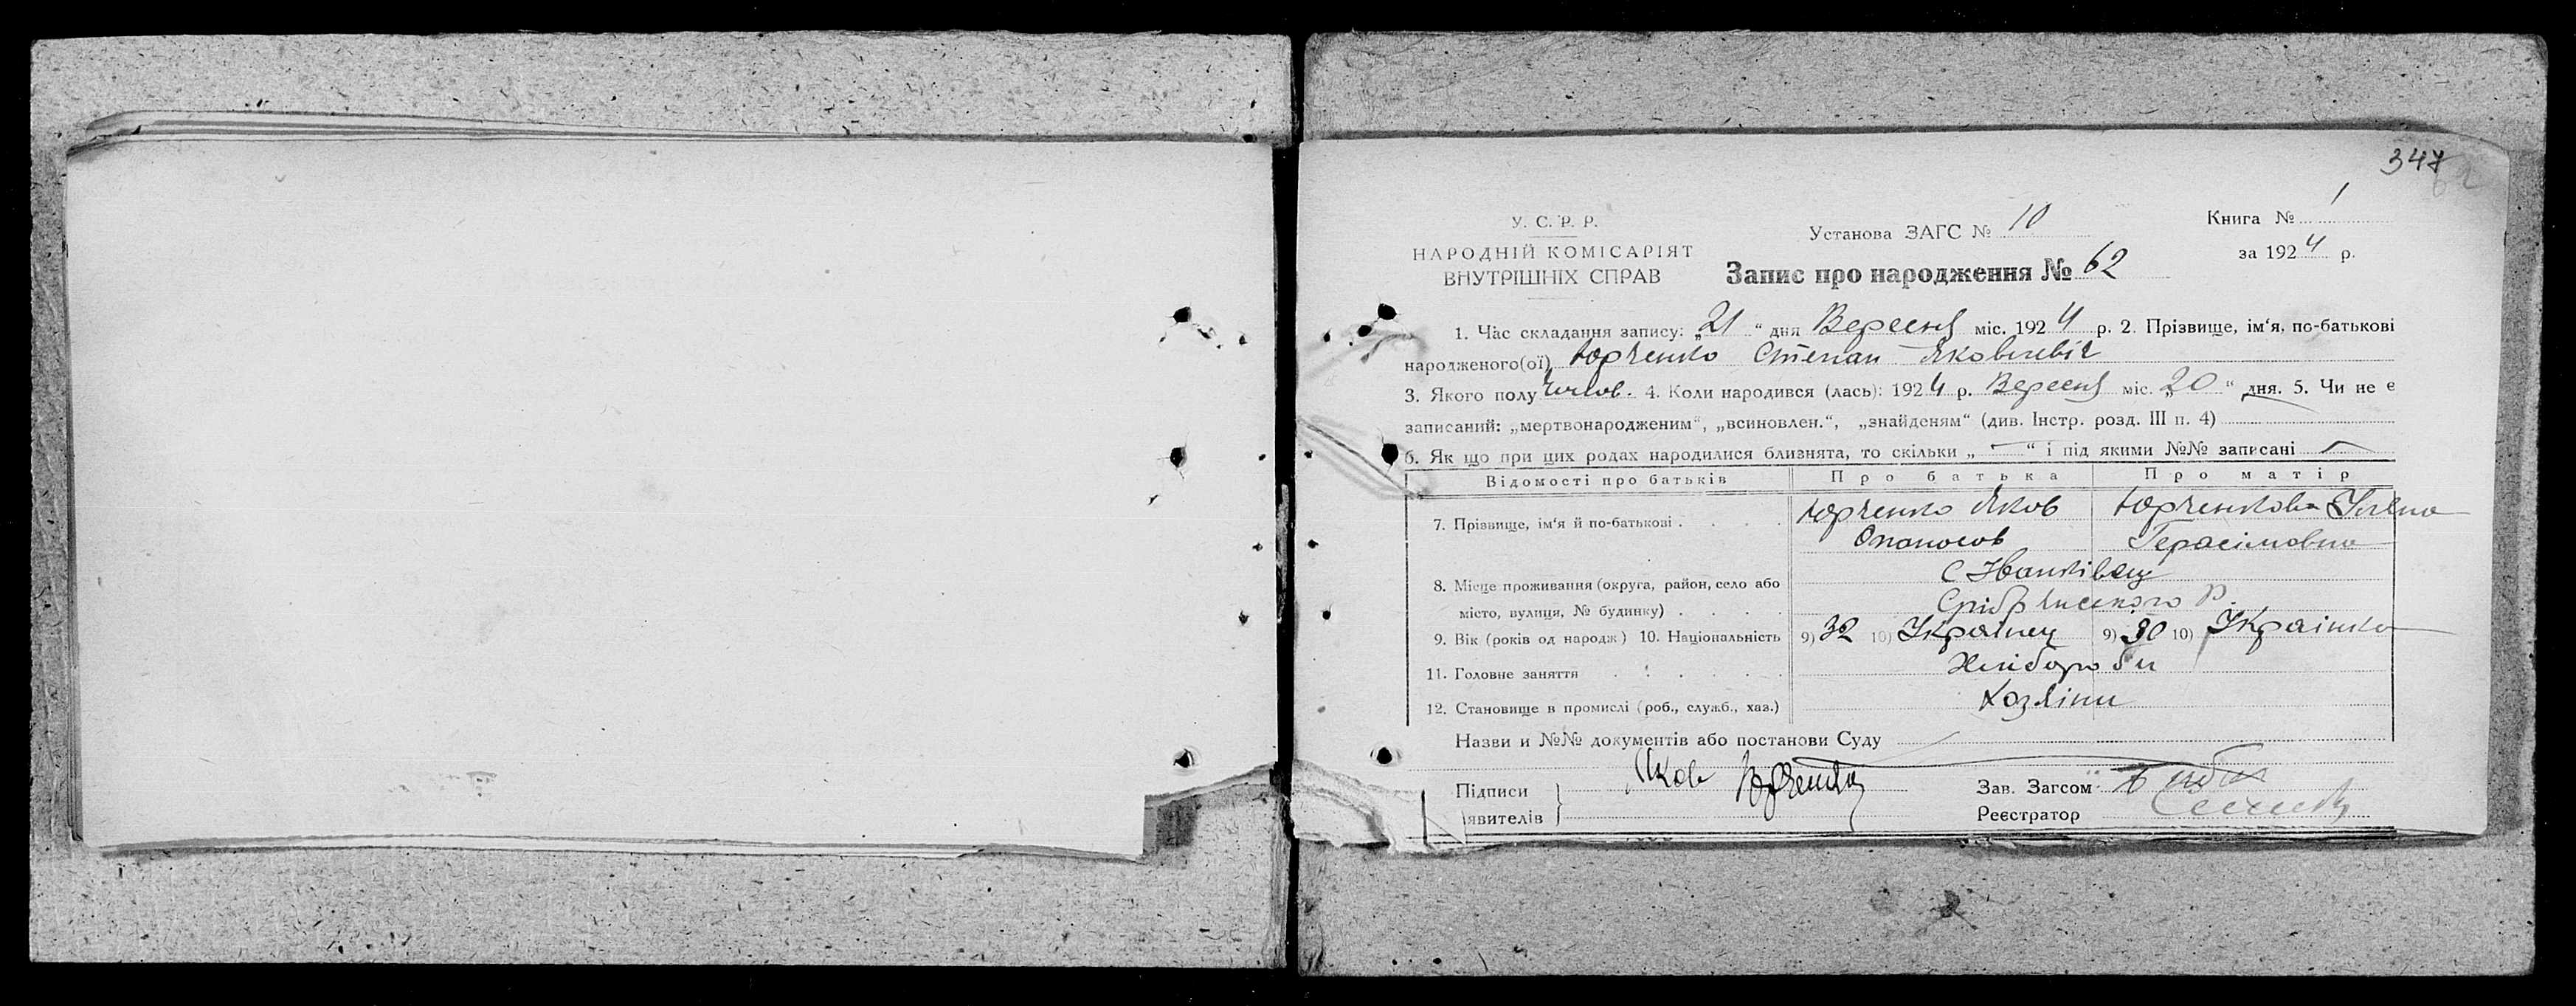 347
62
У. С. Р. Р.
НАРОДНІЙ КОМІСАРІЯТ
ВНУТРІШНІХ СПРАВ
Установа ЗАГС № 10
Запис про народження № 62
Книга № 1
за 1924 р.
1. Час складання запису: „21“ дня Вересня міс. 1924 р. 2. Прізвище, ім‘я, по-батькові
народженого(ої) Юрченко Степан Яковлевіч
3. Якого полу Чолов. 4. Коли народився (лась): 1924 р. Вересня міс. „20“ дня. 5. Чи не є
записаний: „мертвонародженим“, „всиновлен.“, „знайденям“ (див. Інстр. розд. III п. 4)
6. Як що при цих родах народилися близнята, то скільки „—“ і під якими №№ записані —
Відомості про батьків Про батька Про матір
7. Прізвище, ім‘я й по-батькові . . . . Юрченко Яков Юрченкова Уляна
Опанасов Герасімовна
8. Місце проживання (округа, район, село або С Іванківці
місто, вулиця, № будинку) . . . . Срібрянського Р.
9. Вік (років од народж.) 10. Національність 9) 32 10) Українец 9) 30 10) Украінка
11. Головне заняття . . . . . Хліборобы
12. Становище в промислі (роб., служб., хаз.) Хозяіни
Назви и №№ документів або постанови Суду
Підписи Яков Юрченко Зав. Загсом
явителів Реєстратор